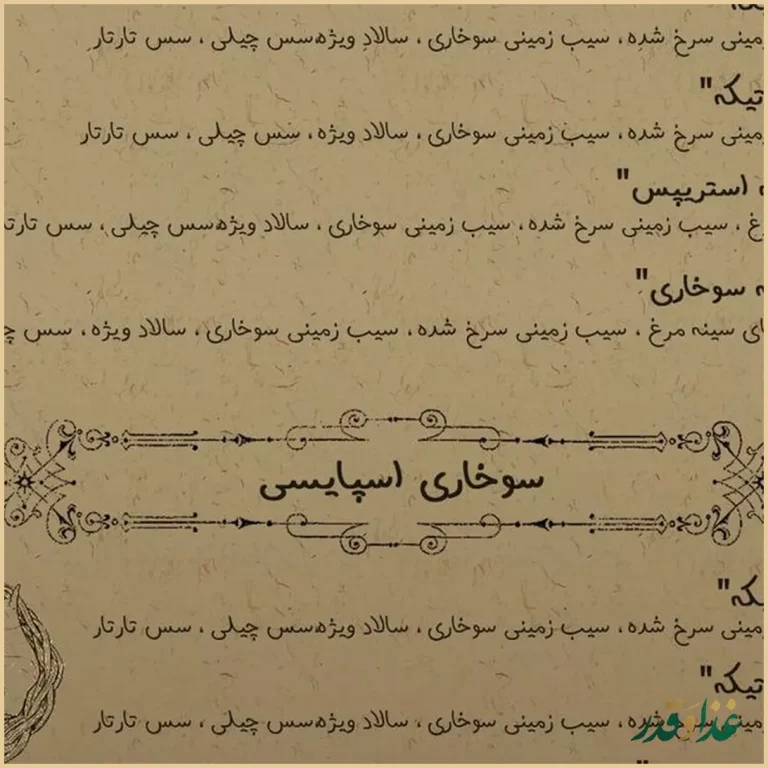 سرخ شده، سیب زمینی سوخاری، سالاد ویژه،سس چیلی، سس تارتار
تیکه"
سرخ شده، سیب زمینی سوخاری، سالاد ویژه، سس چیلی، سس تارتار
استریپس"
سیب زمینی سرخ شده، سیب زمینی سوخاری، سالاد ویژه،سس چیلی، سس تارتار
سوخاری"
سینه مرغ، سیب زمینی سرخ شده، سیب زمینی سوخاری، سالاد ویژه، سس
سوخاری اسپایسی
سرخ شده، سیب زمینی سوخاری، سالاد ویژه،سس چیلی، سس تارتار
تیکه"
سرخ شده، سیب زمینی سوخاری، سالاد ویژه،سس چیلی، سس تارتار